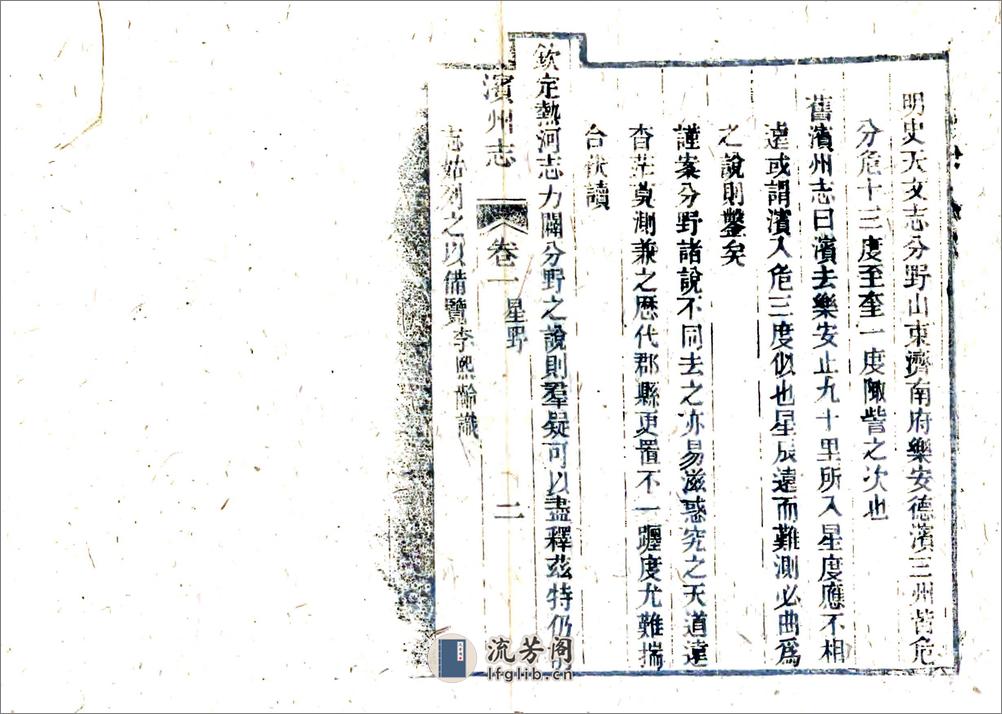 明史天文志分野山東濟南府樂安德濱三州皆危
分危十三度至奎一度陬訾之次也
舊濱州志曰濱去樂安止九十里所入星度應不相
遠或謂濱入危三度似也星辰遠而難測必曲爲
之說則鑿矣
謹案分野諸說不同去之亦易滋惑究之天道遠
杳茫莫測兼之歷代郡縣更置不一躔度尤難揣
合伏讀
欽定熱河志力闢分野之說則羣疑可以盡釋茲特仍
濱州志
卷一
星野
二
志始列之以備覽李熙齡識
流芳阁
lfglib.cn